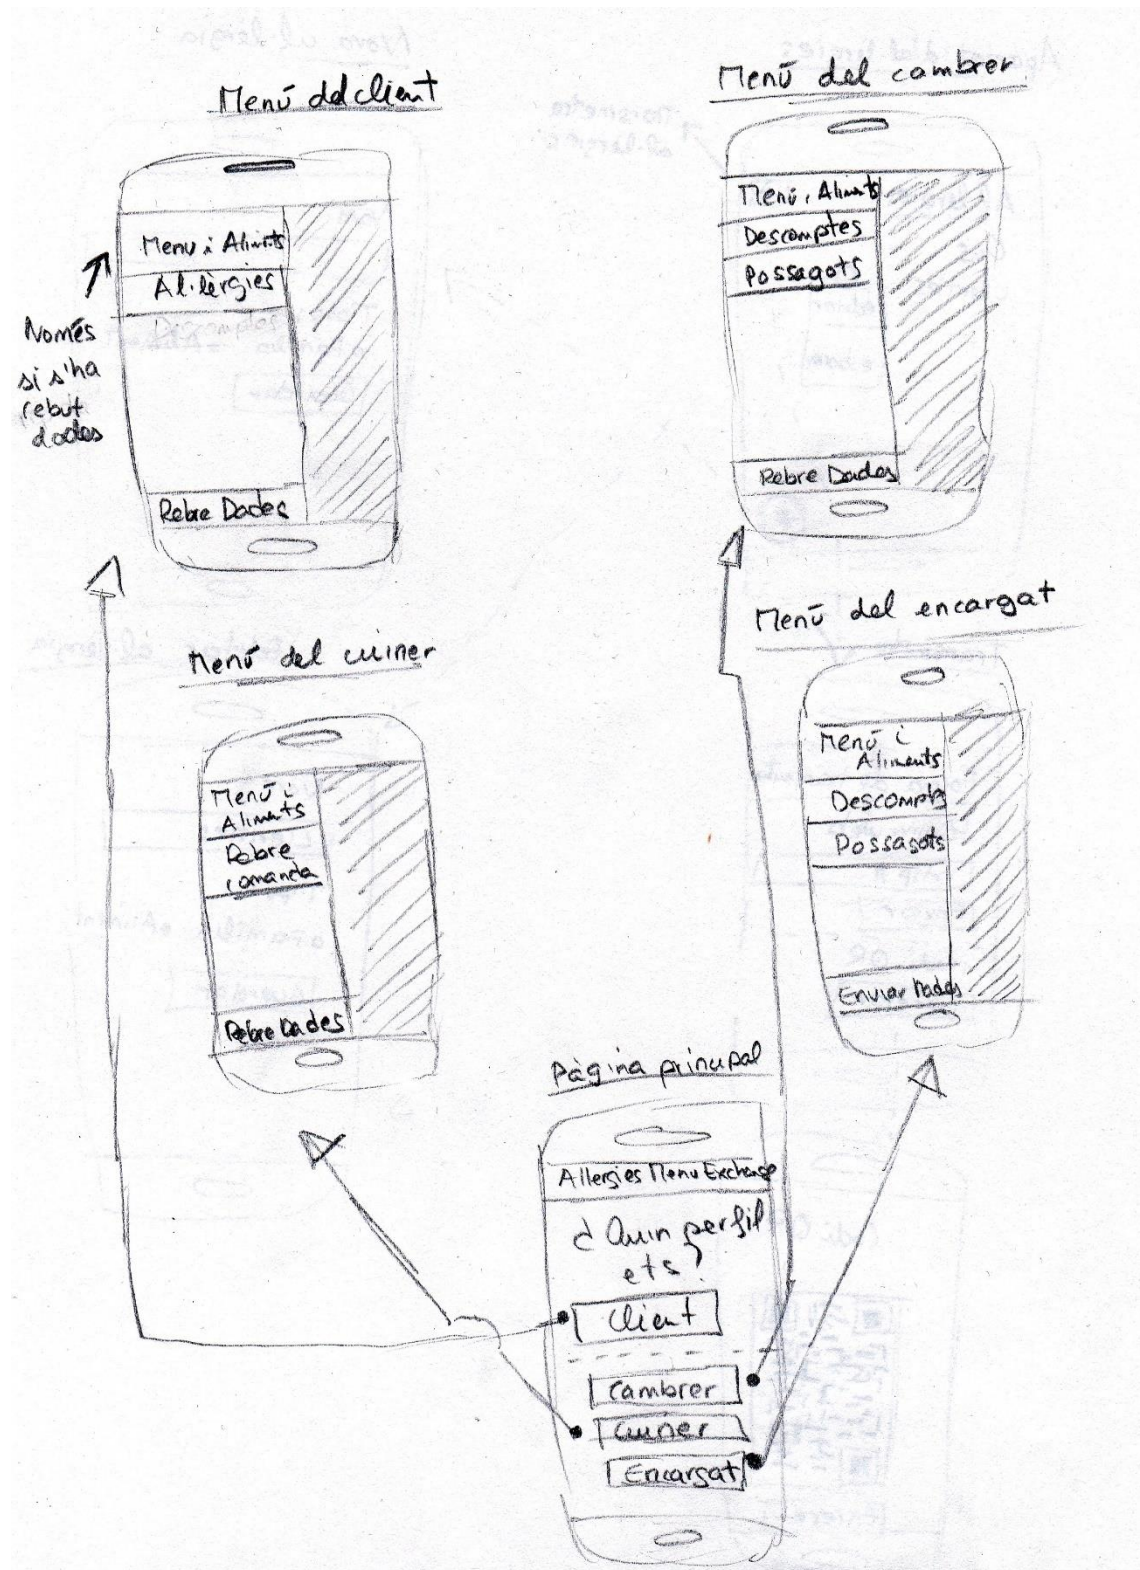 Menú del client
Menú del cambrer
Menu i Aliments
Al·lèrgies
Només
si s'ha
rebut
dades
Rebre Dades
Menú i Aliments
Descomptes
Possagots
Rebre Dades
Menú del cuiner
Menú i
Aliments
Rebre
comanda
Rebre Dades
Menú del encargat
Menú i
Aliments
Descomptes
Possagots
Enviar Dades
Pàgina principal
Allergies Menu Exchange
¿Quin perfil
ets?
Client
Cambrer
Cuiner
Encargat